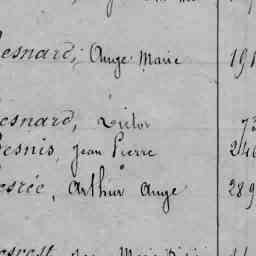 esnard, Ange Marie 191
esnard, Victor 73
esnis, Jean Pierre 246
esrée, Arthur Ange 289